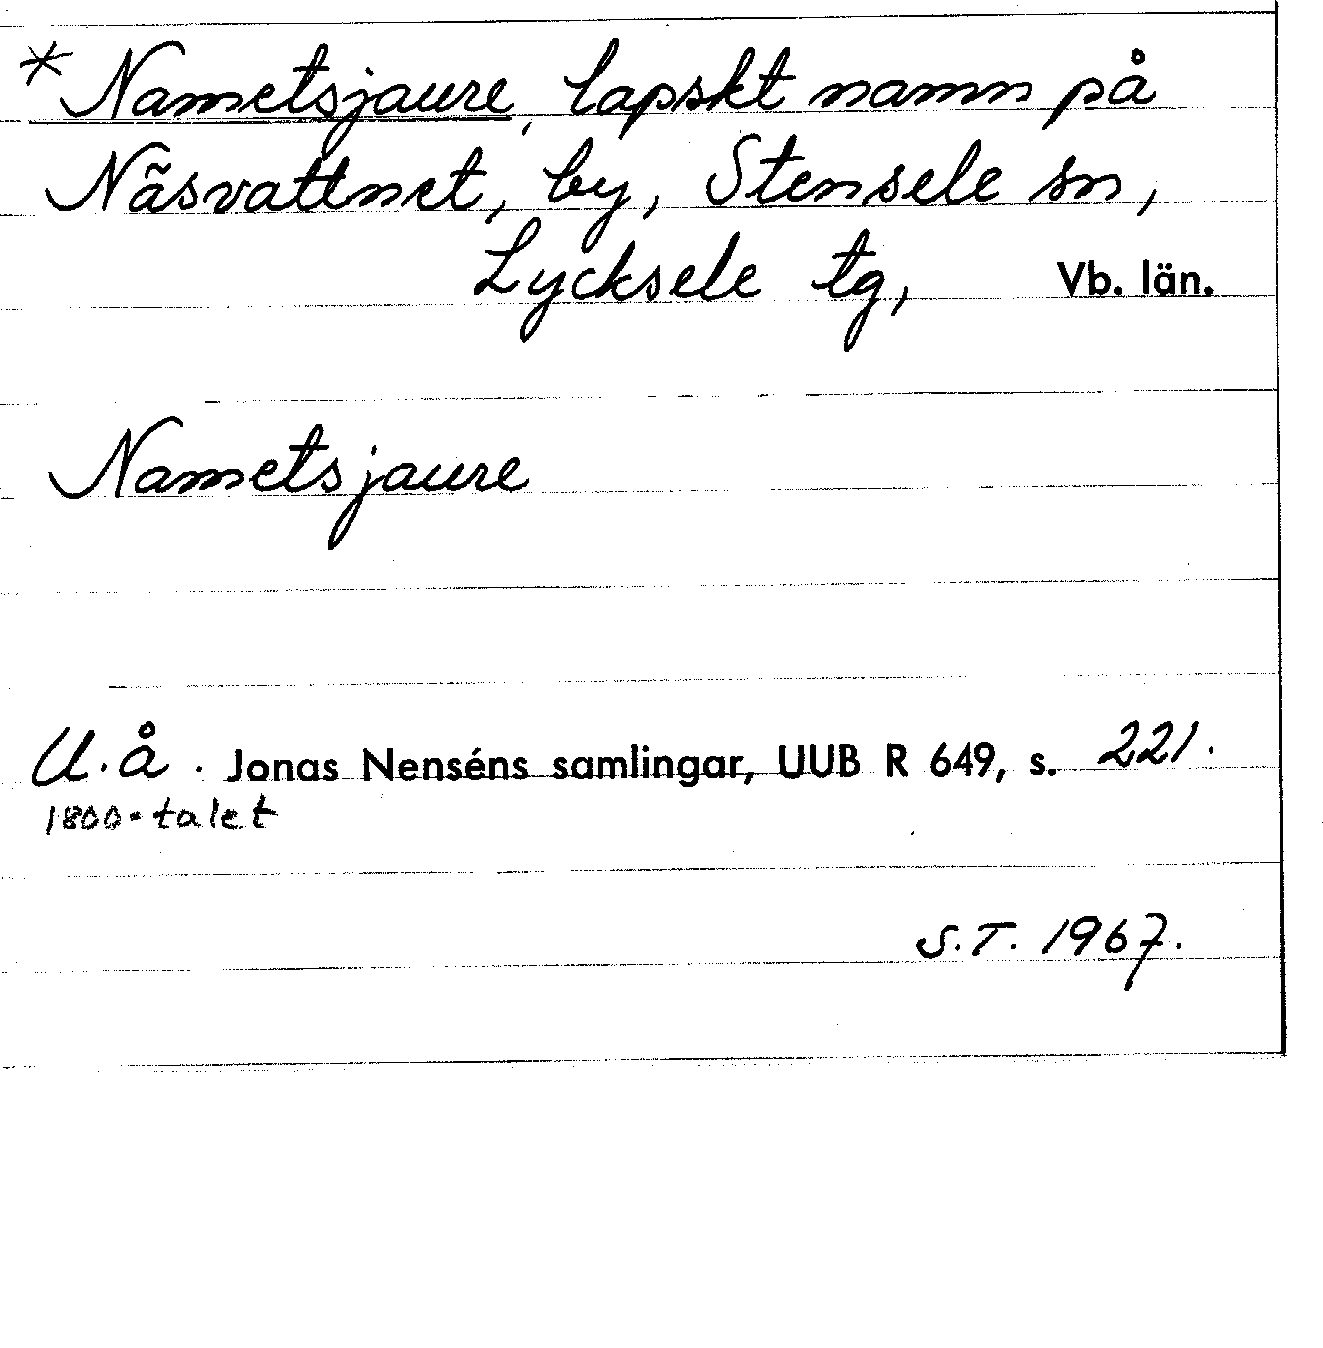 * Nametsjaure, lapskt namn på
Näsvattnet, by, Stensele sn,
Lycksele tg, Vb. län.
Nametsjaure
U.å. Jonas Nenséns samlingar, UUB R 649, s. 221.
1800-talet
S.T. 1967.